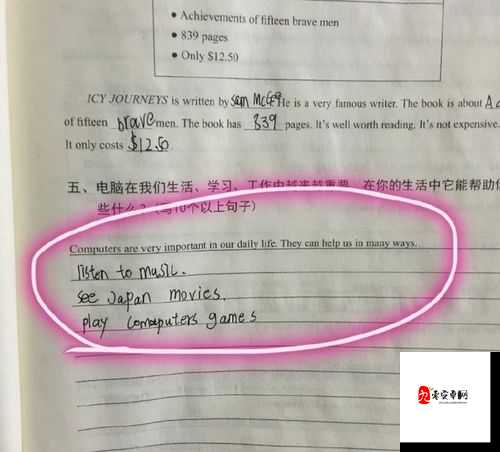 • Achievements of fifteen brave men
• 839 pages
• Only $12.50
ICY JOURNEYS is written by Sam McGee. He is a very famous writer. The book is about A
of fifteen brave men. The book has 839 pages. It's well worth reading. It's not expensive.
It only costs $12.50
五、电脑在我们生活、学习、工作中越来越重要，在你的生活中它能帮助你
些什么？（写10个以上句子）
Computers are very important in our daily life. They can help us in many ways.
listen to music.
see Japan movies.
play computers games
零安卓网